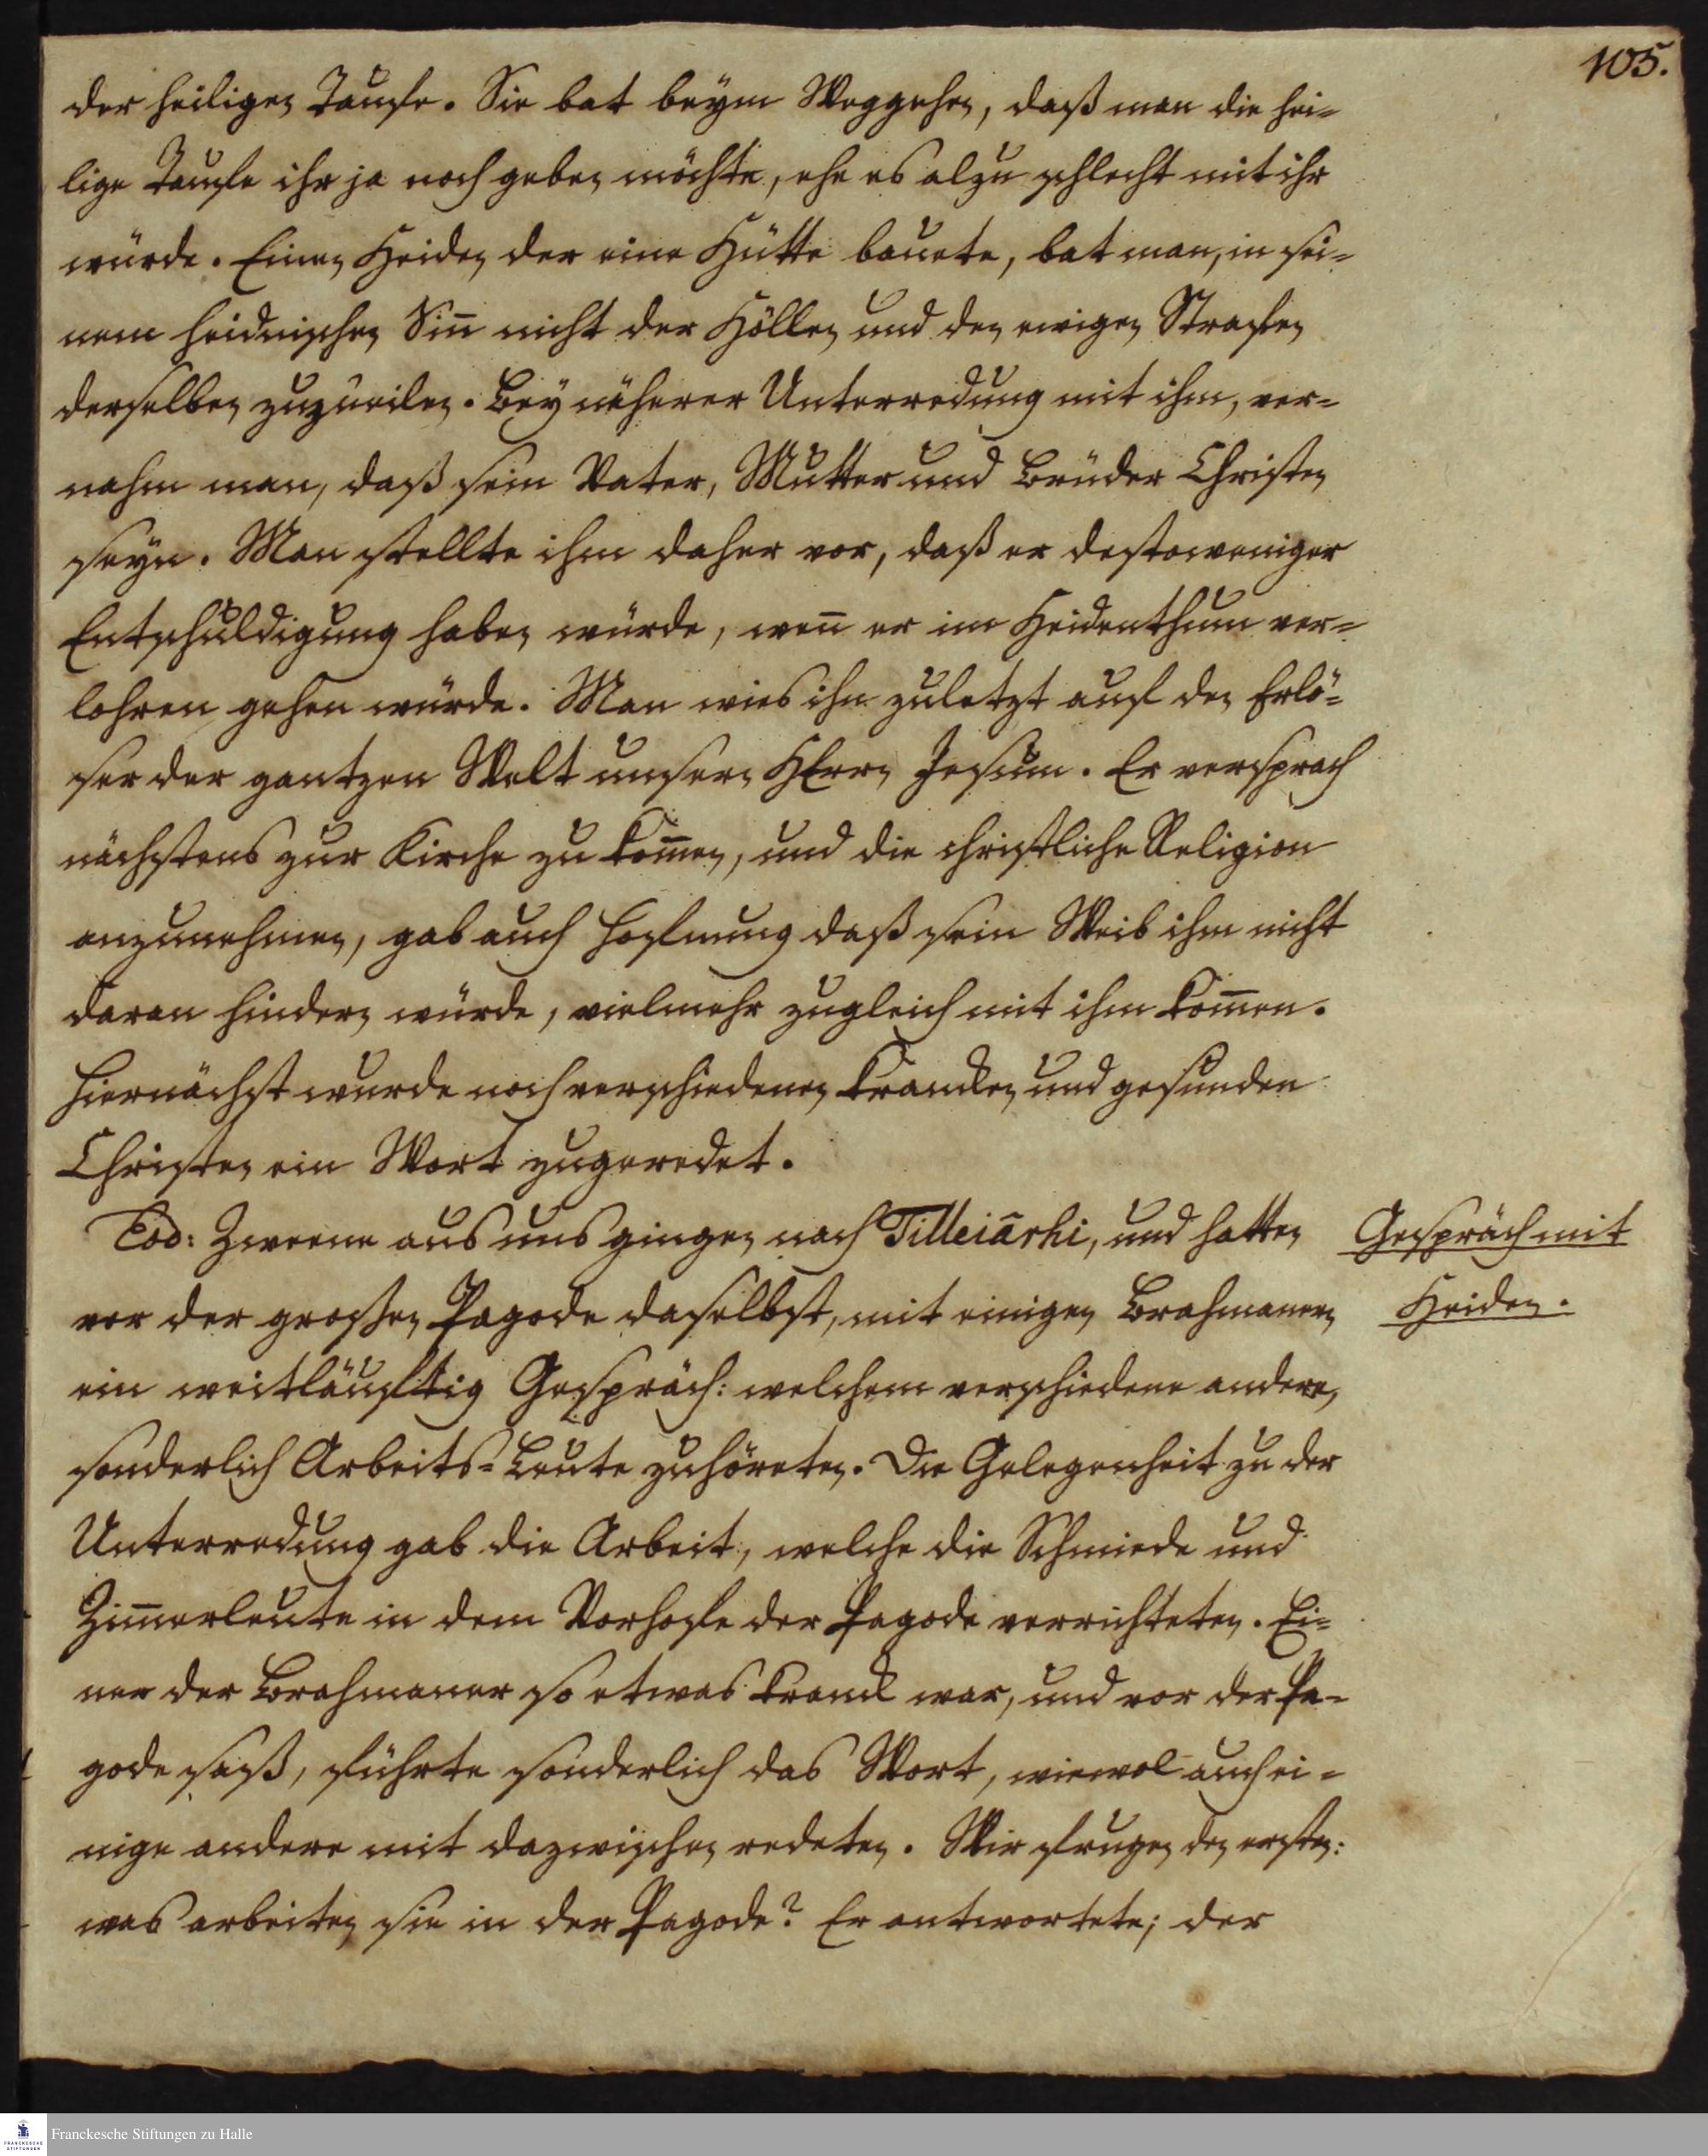 105.
der heiligen Taufe. Sie bat beym Weggehen, daß man die hei-
lige Taufe ihr ja noch geben möchte, ehe es alzu schlecht mit ihr
würde. Einen Heiden der eine Hütte bauete, bat man, in sei-
nem heidnischen Sin̄ nicht der Höllen und den ewigen Strafen
derselben zuzueilen. Bey näherer Unterredung mit ihm, ver-
nahm man, daß sein Vater, Mutter und Brüder Christen
seyn. Man stellte ihm daher vor, daß er destoweniger
Entschuldigung haben würde, wen̄ er im Heidenthum ver-
lohren gehen würde. Man wies ihn zuletzt auf den Erlö-
ser der gantzen Welt unsern HErrn Jesum. Er versprach
nächstens zur Kirche zu kom̄en, und die christliche Religion
anzunehmen, gab auch Hofnung daß sein Weib ihm nicht
daran hindern würde, vielmehr zugleich mit ihm kom̄en.
Hiernächst wurde noch verschiedenen krancken und gesunden
Christen ein Wort zugeredet.
Eod: Zweene aus uns gingen nach Tilleiārhi, und hatten
Gespräch mit
Heiden.
vor der grossen Pagode daselbst, mit einigen Brahmanern
ein weitläuftig Gespräch: welchem verschiedene andere,
sonderlich Arbeits-Leute zuhöreten. Die Gelegenheit zu der
Unterredung gab die Arbeit, welche die Schmiede und
Zim̄erleute in dem Vorhofe der Pagode verrichteten. Ei-
ner der Brahmaner so etwas kranck war, und vor der Pa-
gode saß, führte sonderlich das Wort, wiewol auch ei-
nige andere mit dazwischen redeten. Wir frugen den ersten:
was arbeiten sie in der Pagode? Er antwortete; der
Franckesche Stiftungen zu Halle